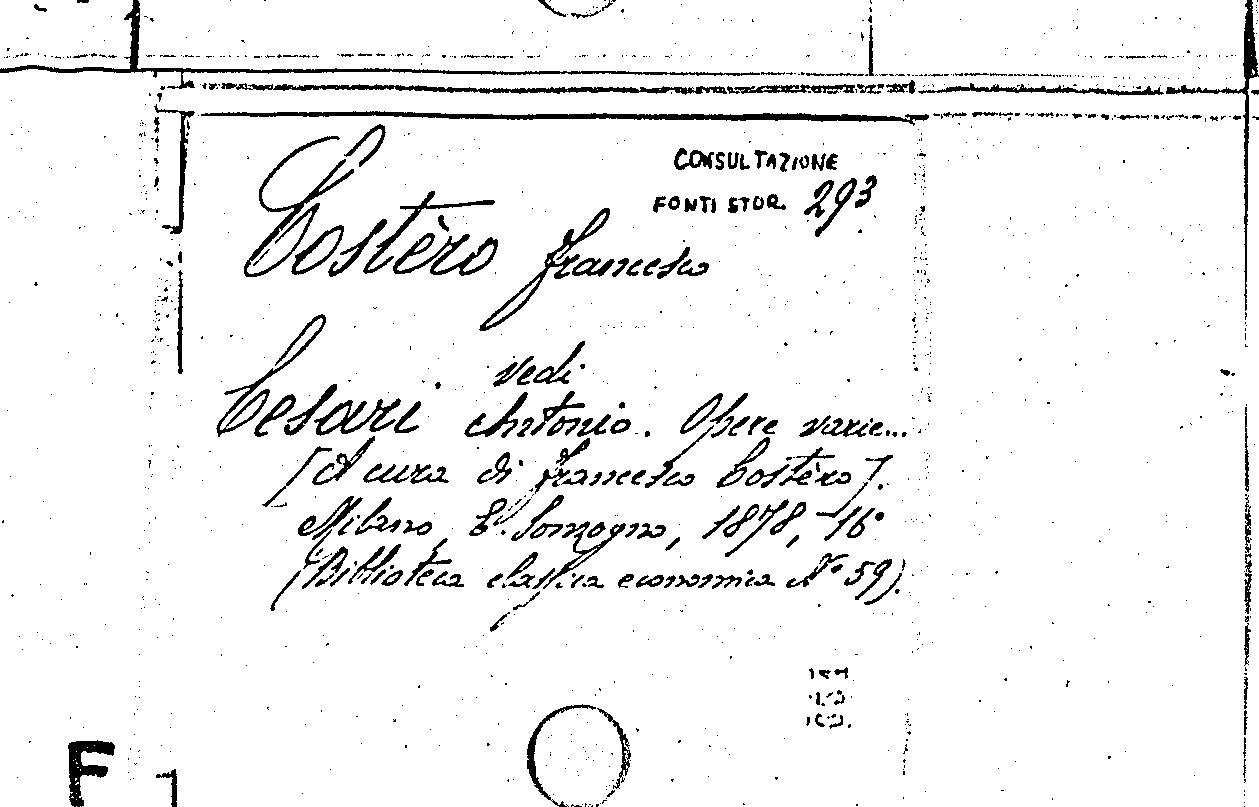 CONSULTAZIONE
FONTI STOR. 293
Costèro Francesco
vedi
Cesari Antonio. Opere varie...
[A cura di Francesco Costèro].
Milano, E. Sonzogno, 1878, -16°
(Biblioteca classica economica N° 59).
F